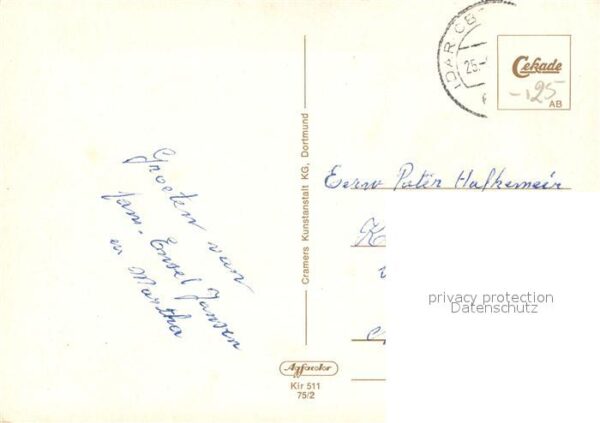 IDAR-OB
25-
Cekade
-,125
AB
Groeten van
fam. Ensel Jansen
en Martha
Cramers Kunstanstalt KG, Dortmund
Eerw Patér Halkemeir
K
privacy protection
Datenschutz
Agfacolor
Kir 511
75/2